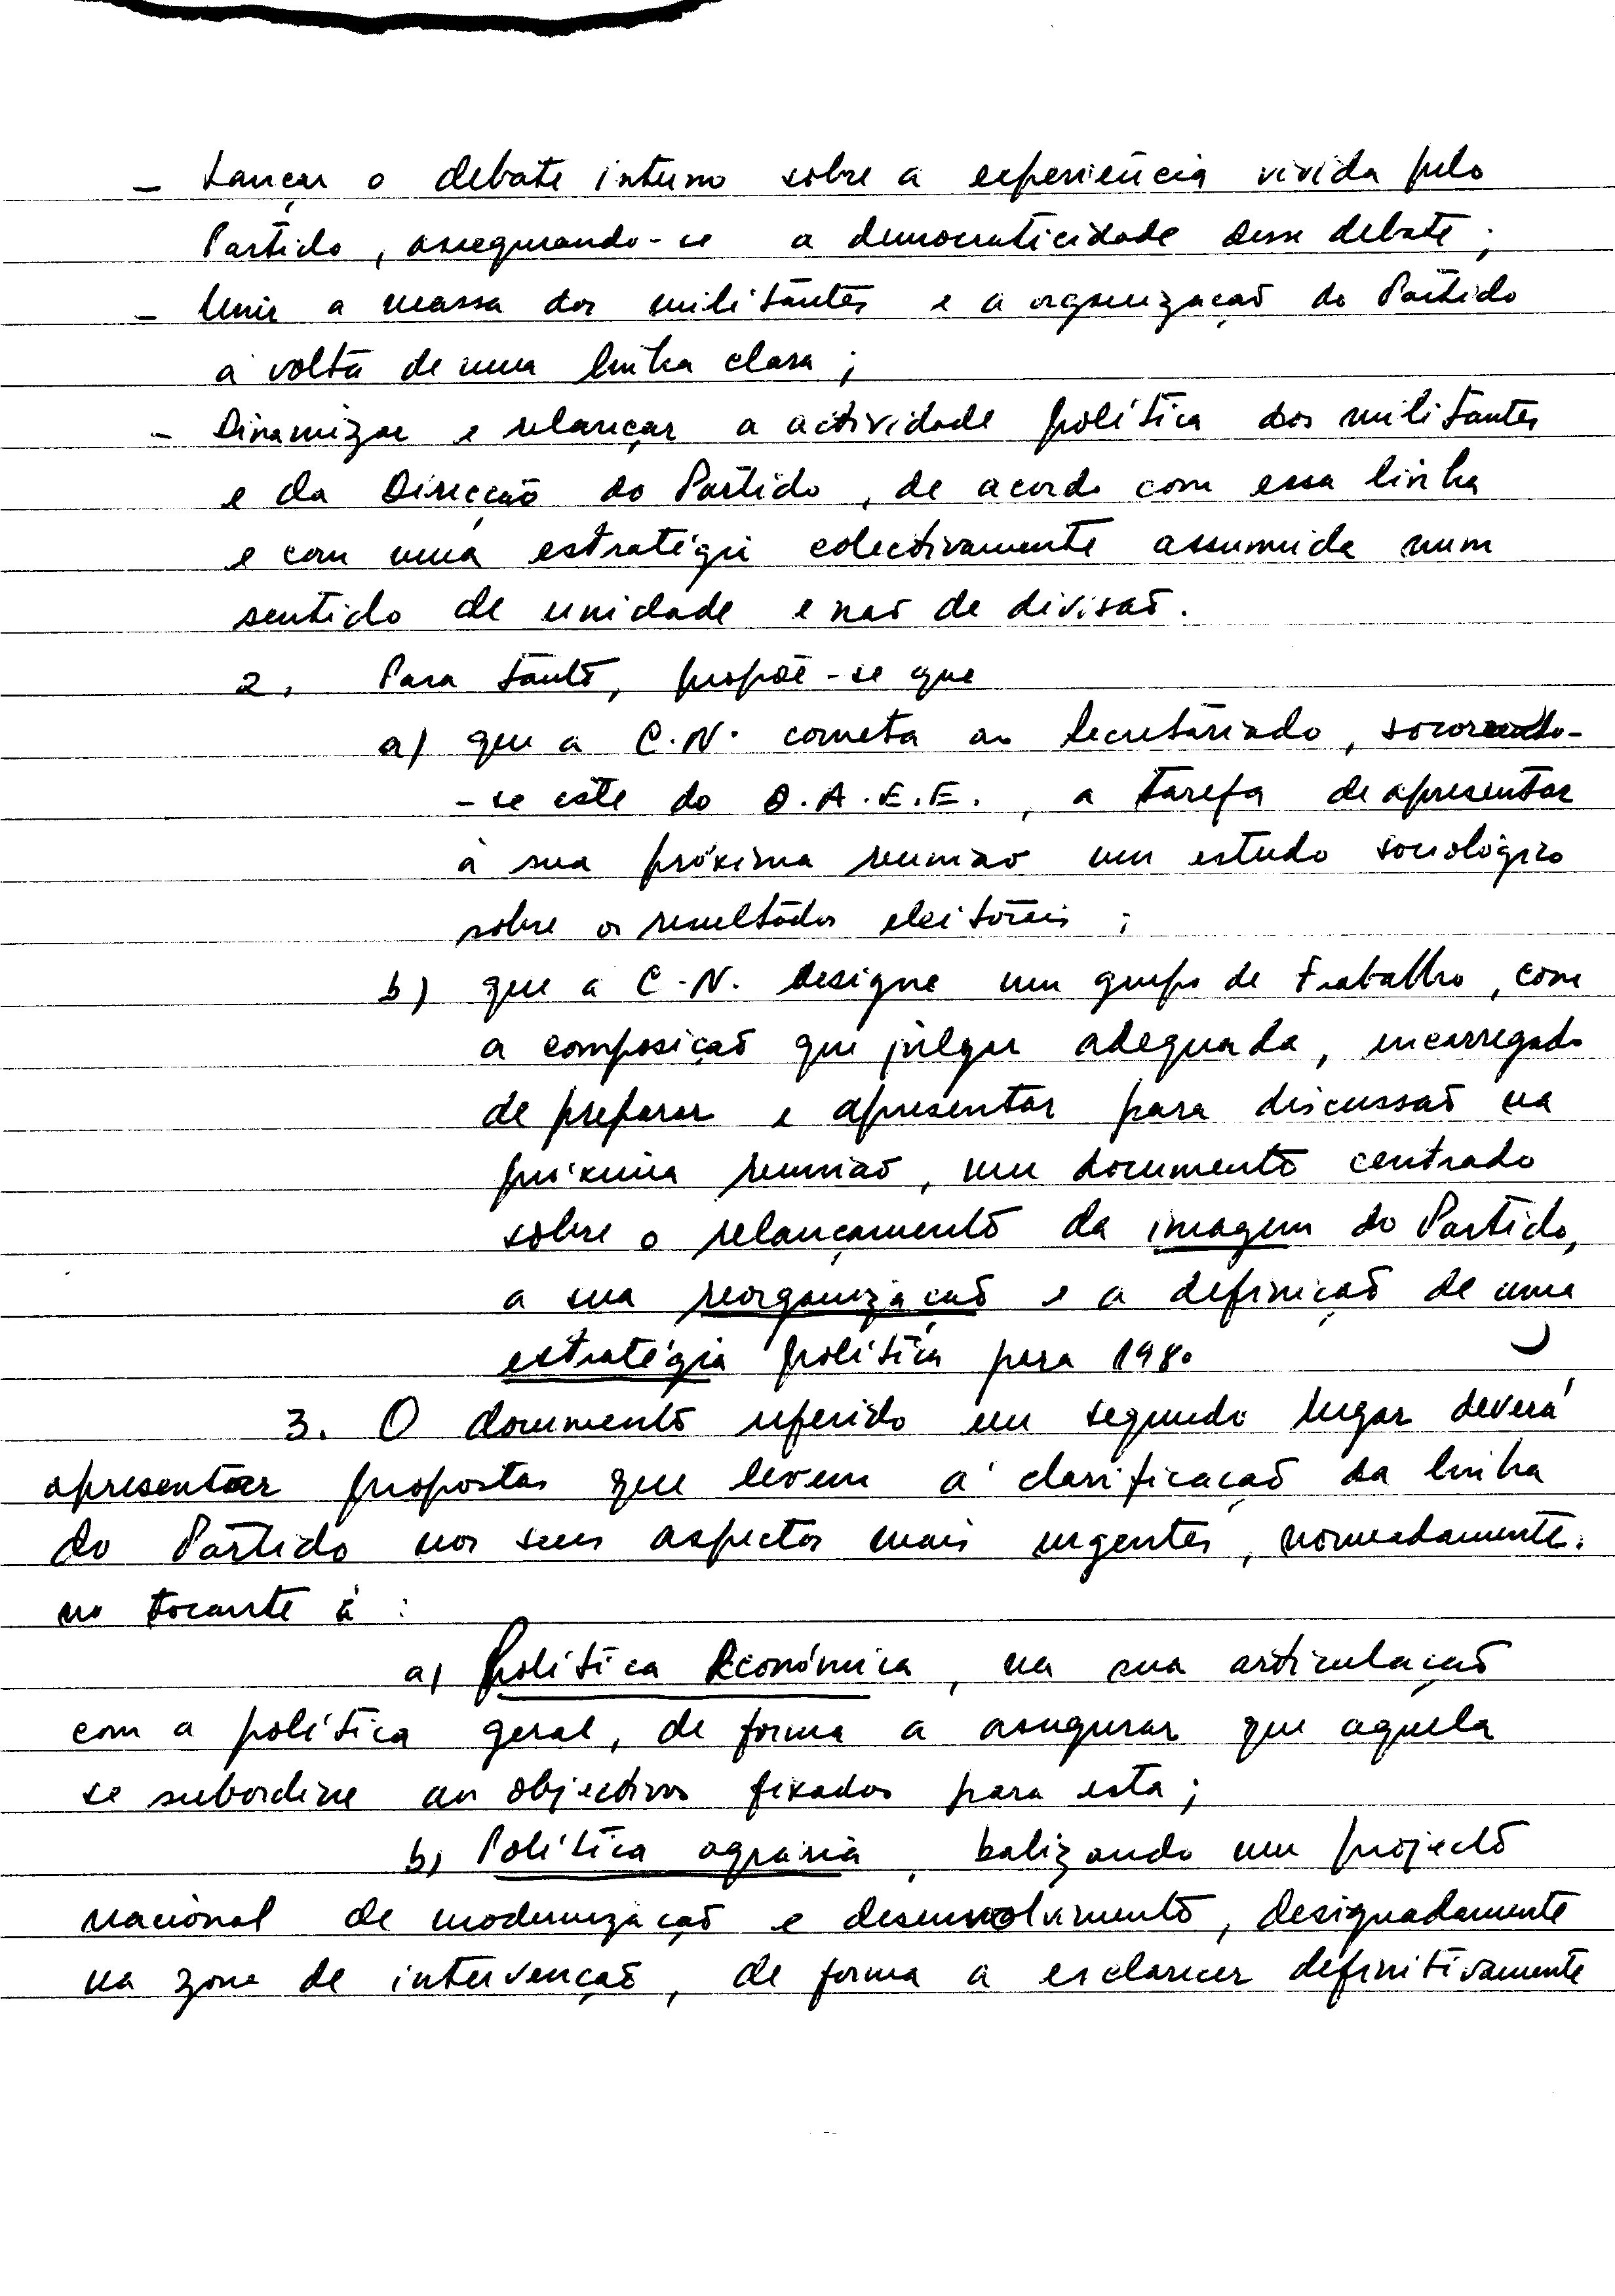 - Lançar o debate interno sobre a experiência vivida pelo
Partido, assegurando-se a democraticidade desse debate;
- Unir a massa dos militantes e a organização do Partido
à volta de uma linha clara;
- Dinamizar e relançar a actividade política dos militantes
e da Direcção do Partido, de acordo com essa linha
e com uma estratégia colectivamente assumida num
sentido de unidade e não de divisão.
2. Para tanto, propõe-se que
a) que a C.N. cometa ao Secretariado, socorrendo-
-se este do D.A.E.E., a tarefa de apresentar
à sua próxima reunião um estudo sociológico
sobre os resultados eleitorais;
b) que a C.N. designe um grupo de trabalho, com
a composição que julgar adequada, encarregado
de preparar e apresentar para discussão na
próxima reunião, um documento centrado
sobre o relançamento da imagem do Partido,
a sua reorganização e a definição de uma
estratégia política para 1980
3. O documento referido em segundo lugar deverá
apresentar propostas que levem à clarificação da linha
do Partido nos seus aspectos mais urgentes, nomeadamente.
no tocante à:
a) Política Económica, na sua articulação
com a política geral, de forma a assegurar que aquela
se subordine aos objectivos fixados para esta;
b) Política agrária, balizando um projecto
nacional de modernização e desenvolvimento, designadamente
na zona de intervenção, de forma a esclarecer definitivamente